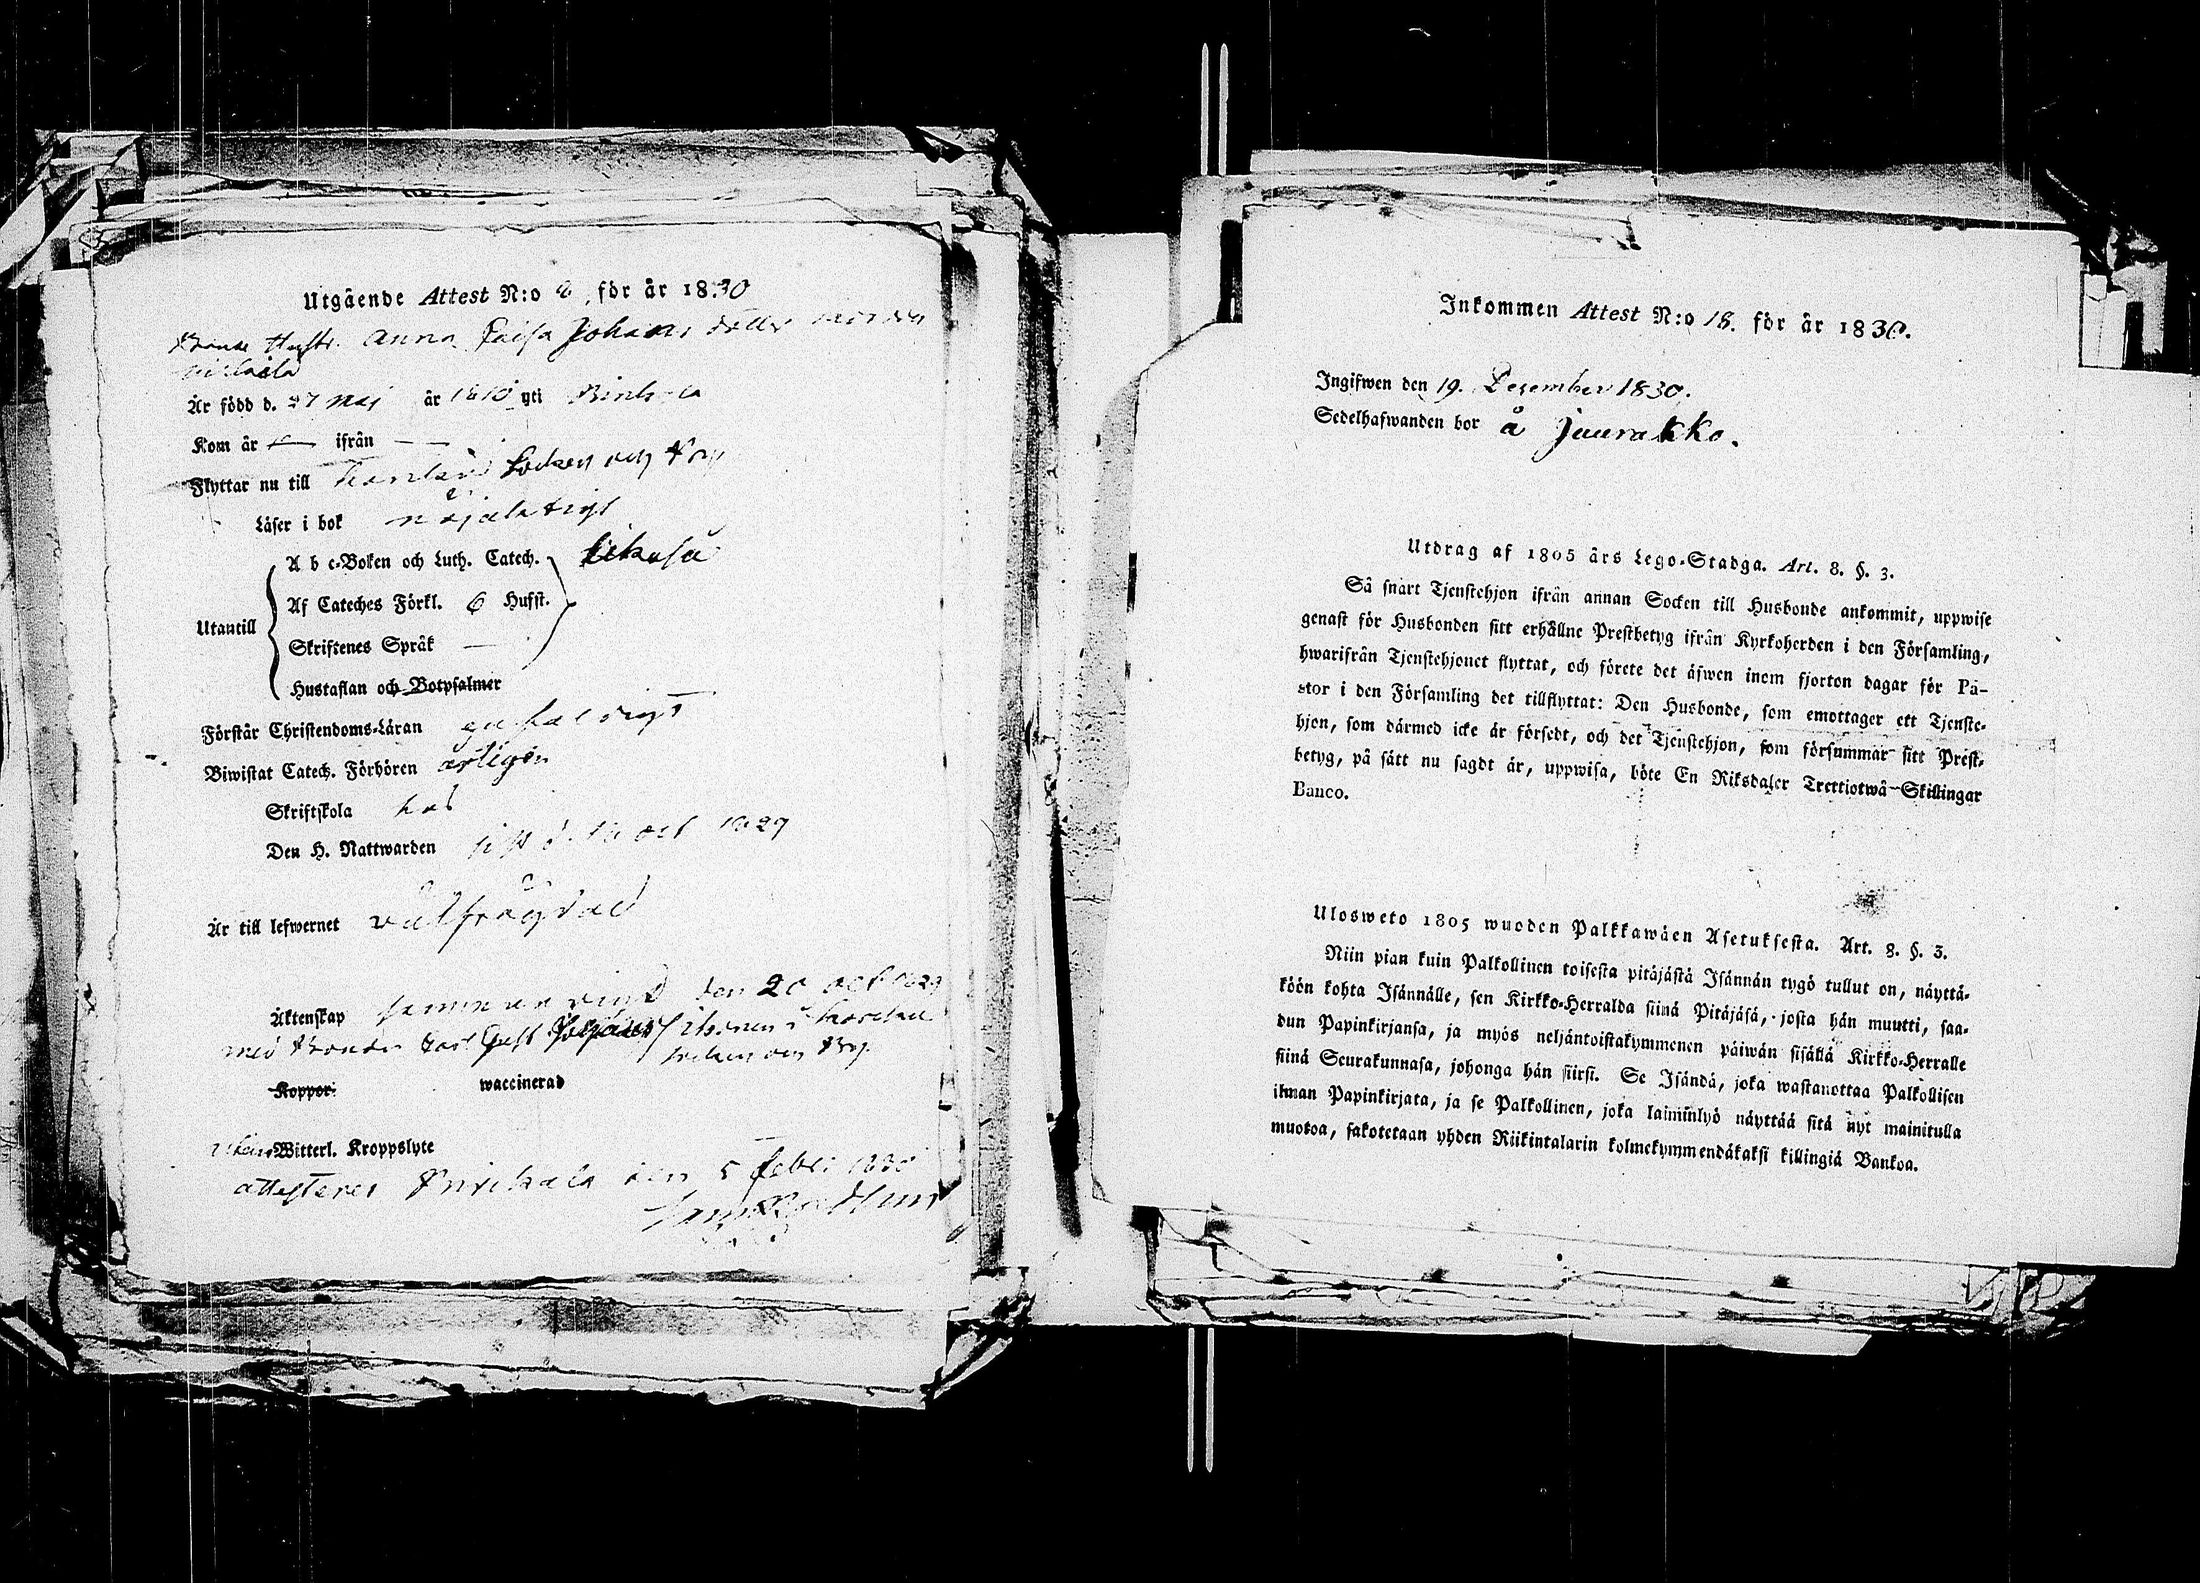 Utgående Attest N:o 8, för år 1830
Bonde Hustr. Anna Caisa Johans dotter
Är född d. 27 Maj år 1810 uti
Kom år — ifrån — —
Flyttar nu till Socken och By
Läser i bok nöjaktigt
A b c-Boken och Luth. Catech. likaså
Af Cateches Förkl. 6 Hufst.
Utantill
Skriftenes Språk —
Hustaflan och Botpsalmer
Förstår Christendoms-Läran enfaldigt
Biwistat Catech. Förhören årligen
Skriftskola
Den H. Nattwarden sist d. oct 1829
Är till lefwernet wälfrägdad
Äktenskap den 20 oct 1829
med Bonden Carl Gust
Socken och By.
Koppor. waccinerad
utan Witterl. Kroppslyte
attesterar den 5 Febr. 1830
Inkommen Attest N:o 18. för år 1830.
Ingifwen den 19. December 1830.
Sedelhafwanden bor å Juurakko.
Utdrag af 1805 års Lego-Stadga. Art. 8. §. 3.
Så snart Tjenstehjon ifrån annan Socken till Husbonde ankommit, uppwise
genast för Husbonden sitt erhållne Prestbetyg ifrån Kyrkoherden i den Församling,
hwarifrån Tjenstehjonet flyttat, och förete det äfwen inom fjorton dagar för Pa-
stor i den Församling det tillflyttat: Den Husbonde, som emottager ett Tjenste-
hjon, som därmed icke är försedt, och det Tjenstehjon, som försummar sitt Prest-
betyg, på sätt nu sagdt är, uppwisa, böte En Riksdaler Trettiotwå Skillingar
Banco.
Ulosweto 1805 wuoden Palkkawäen Asetuksesta. Art. 8. §. 3.
Niin pian kuin Palkollinen toisesta pitäjästä Isännän tygö tullut on, näyttä-
köön kohta Isännälle, sen Kirkko-Herralda siinä Pitäjäsä, josta hän muutti, saa-
dun Papinkirjansa, ja myös neljäntoistakymmenen päiwän sisällä Kirkko-Herralle
siinä Seurakunnasa, johonga hän siirsi. Se Isändä, joka wastanottaa Palkollisen
ilman Papinkirjata, ja se Palkollinen, joka laiminlyö näyttää sitä nyt mainitulla
muotoa, sakotetaan yhden Riikintalarin kolmekymmendäkaksi killingiä Bankoa.